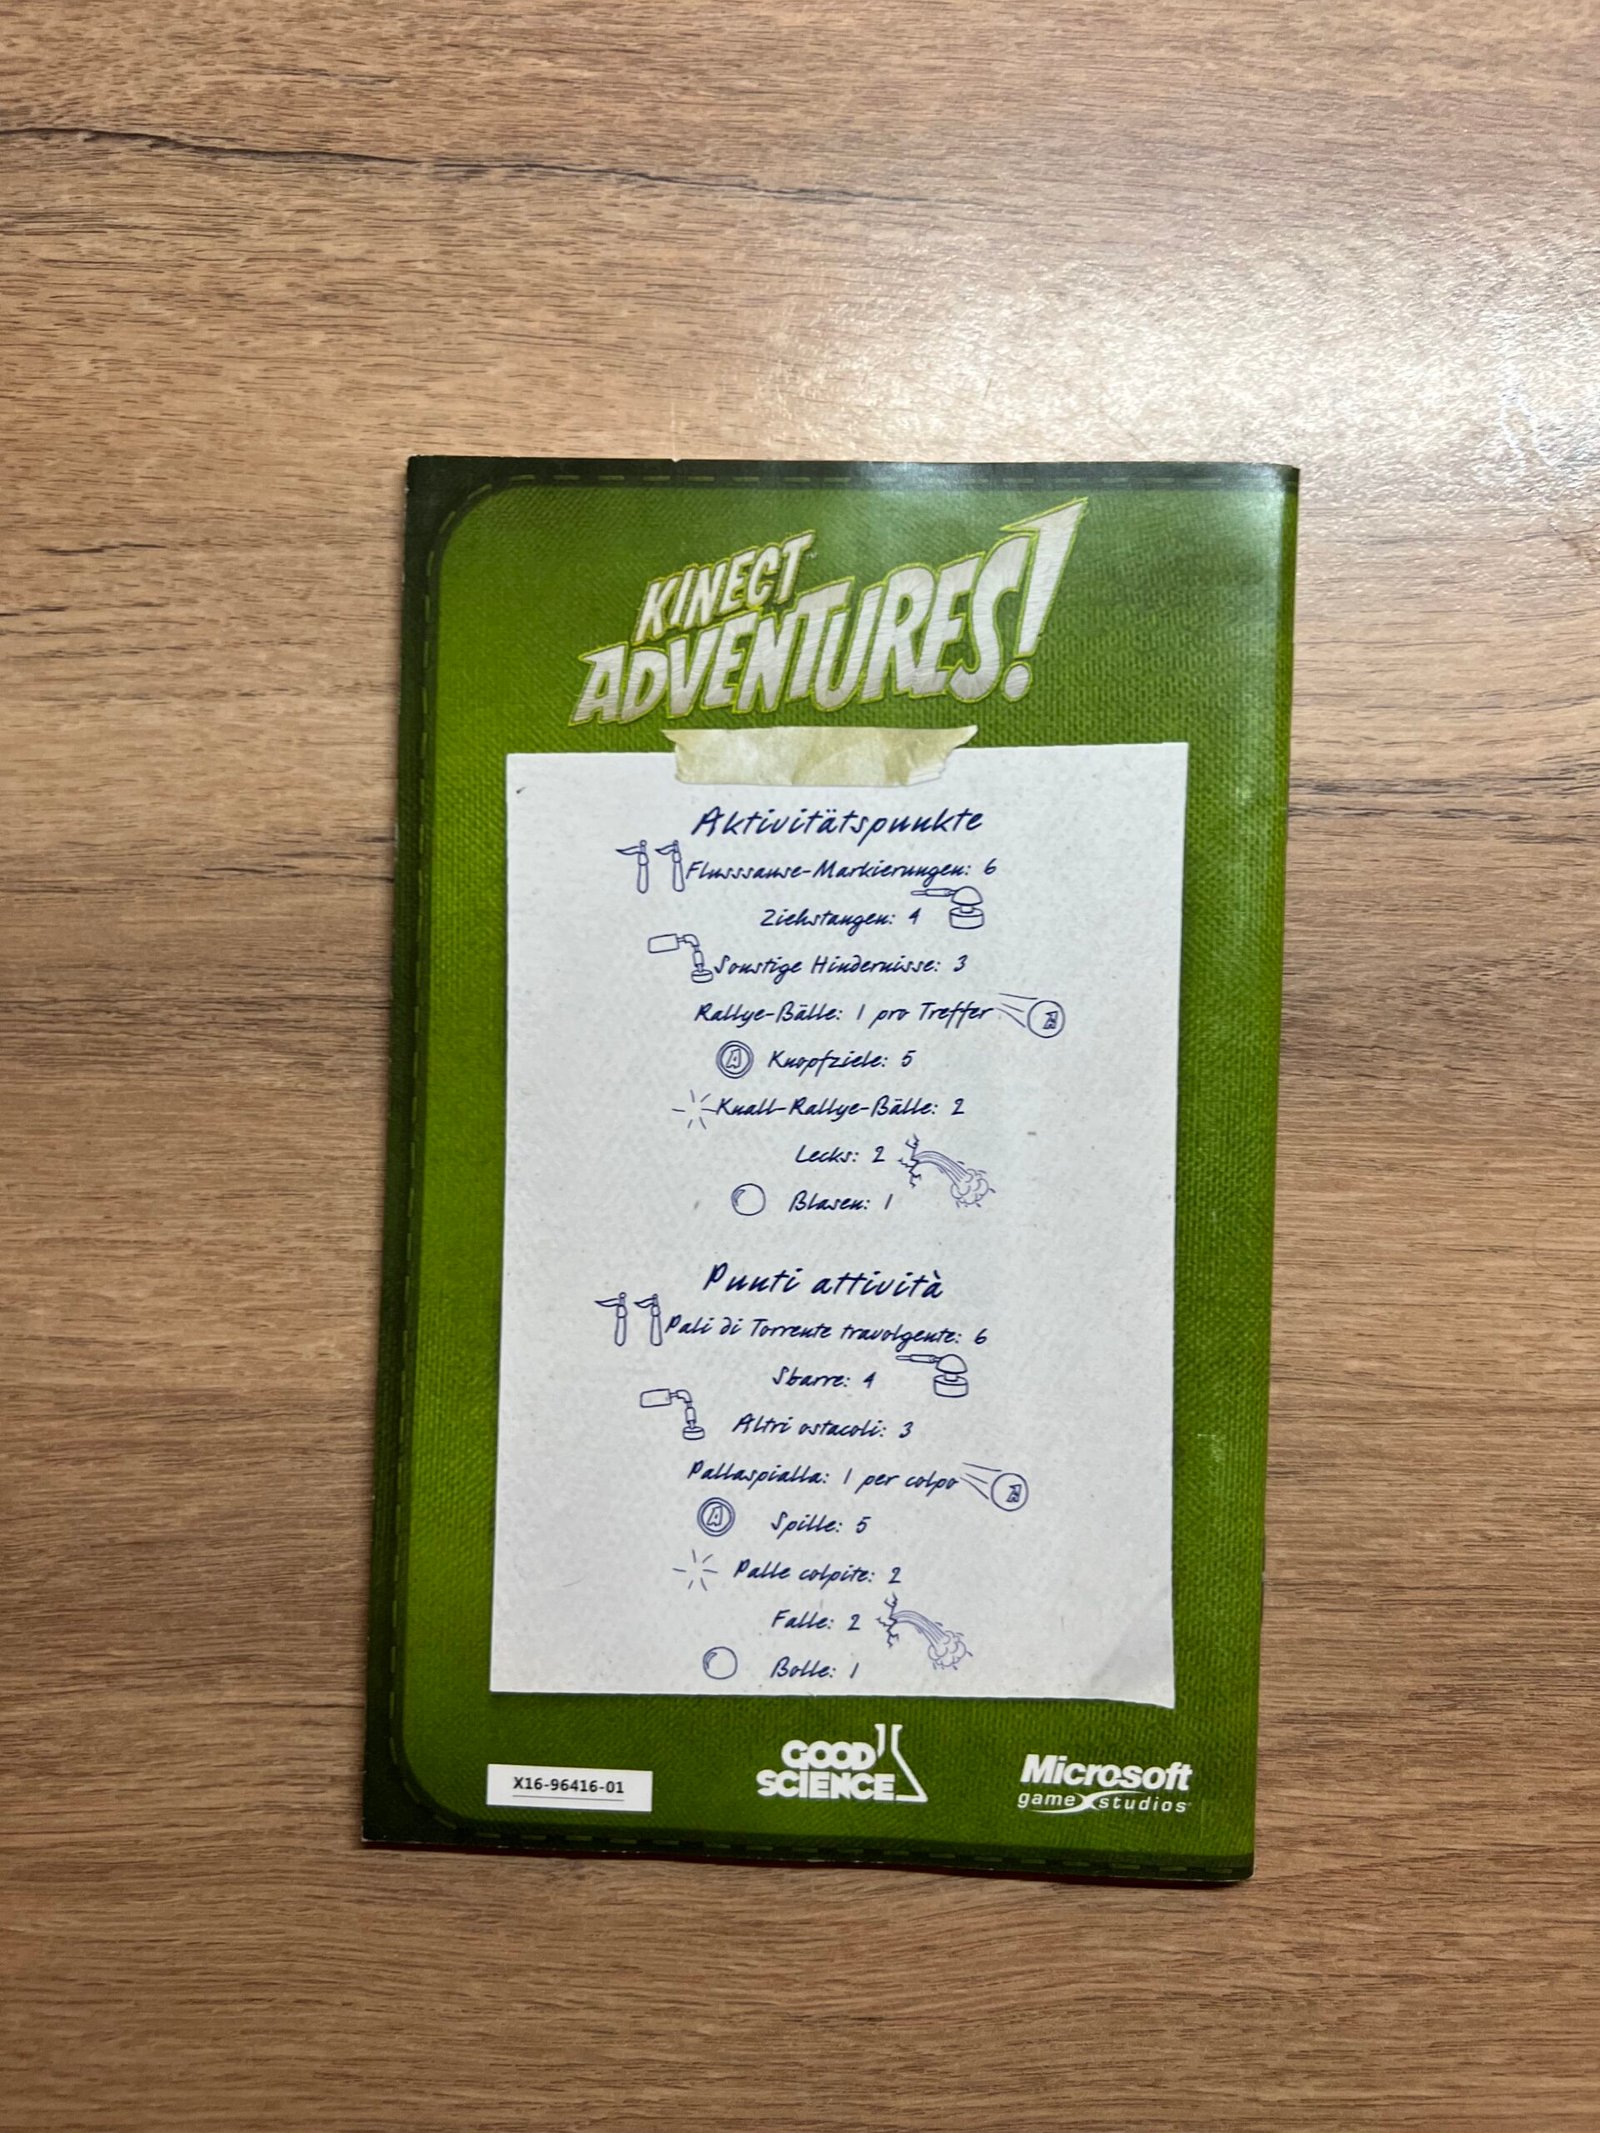 KINECT
ADVENTURES!
Aktivitätspunkte
Flusssause-Markierungen: 6
Ziehstangen: 4
Sonstige Hindernisse: 3
Rallye-Bälle: 1 pro Treffer
A
A Knopfziele: 5
Knall-Rallye-Bälle: 2
Lecks: 2
Blasen: 1
Punti attività
Pali di Torrente travolgente: 6
Sbarre: 4
Altri ostacoli: 3
Pallaspialla: 1 per colpo
A
A Spille: 5
Palle colpite: 2
Falle: 2
Bolle: 1
X16-96416-01
GOOD
SCIENCE
Microsoft
game studios